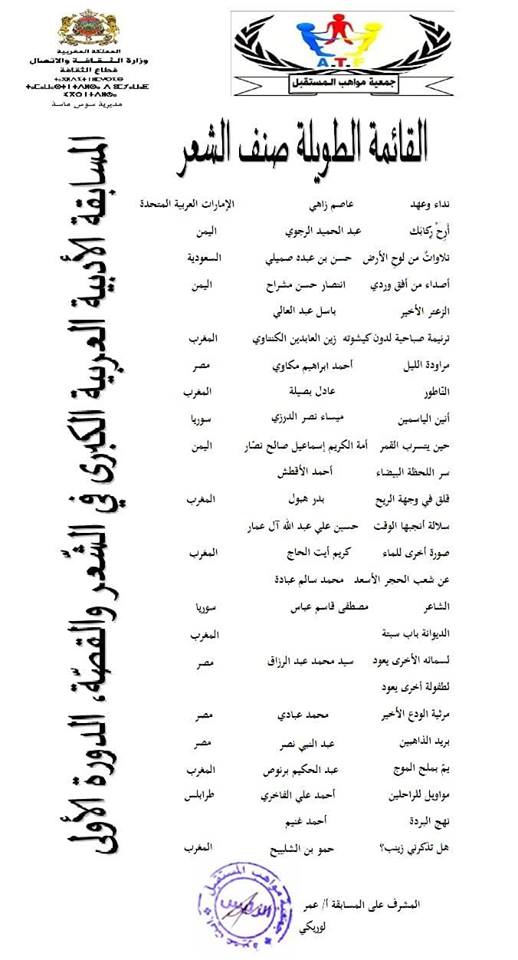 المملكة المغربية
وزارة الثقافة والاتصال
قطاع الثقافة
مديرية سوس ماسة
A.T.F
جمعية مواهب المستقبل
القائمة الطويلة صنف الشعر
المسابقة الأدبية العربية الكبرى في الشّعر والقصّة، الدورة الأولى
نداء وعهد عاصم زاهي الإمارات العربية المتحدة
أرِحْ رِكابَك عبد الحميد الرجوي اليمن
تلاواتٌ من لوحِ الأرض حسن بن عبده صميلي السعودية
أصداء من أفق وردي انتصار حسن مشراح اليمن
الزعتر الأخير باسل عبد العالي
ترنيمة صباحية لدون كيشوته زين العابدين الكنتاوي المغرب
مراودة الليل أحمد ابراهيم مكاوي مصر
النّاطور عادل بصيلة المغرب
أنين الياسمين ميساء نصر الدرزي سوريا
حين يتسرب القمر أمة الكريم إسماعيل صالح نصّار اليمن
سر اللحظة البيضاء أحمد الأقطش
قلق في وجهة الريح بدر هبول المغرب
سلالة أنجبها الوقت حسين علي عبد الله آل عمار
صورة أخرى للماء كريم أيت الحاج المغرب
عن شعب الحجر الأسعد محمد سالم عبادة
الشاعر مصطفى قاسم عباس سوريا
الديوانة باب سبتة المغرب
لسمائه الأخرى يعود سيد محمد عبد الرزاق مصر
لطفولة أخرى يعود
مرثية الودع الأخير محمد عبادي مصر
بريد الذاهبين عبد النبي نصر مصر
يمّ بملح الموج عبد الحكيم برنوص المغرب
مواويل للراحلين أحمد علي الفاخري طرابلس
نهج البردة أحمد غنيم
هل تذكرني زينب؟ حمو بن الشليبح المغرب
المشرف على المسابقة أ/ عمر
لوريكي
جمعية مواهب المستقبل
الرئيس